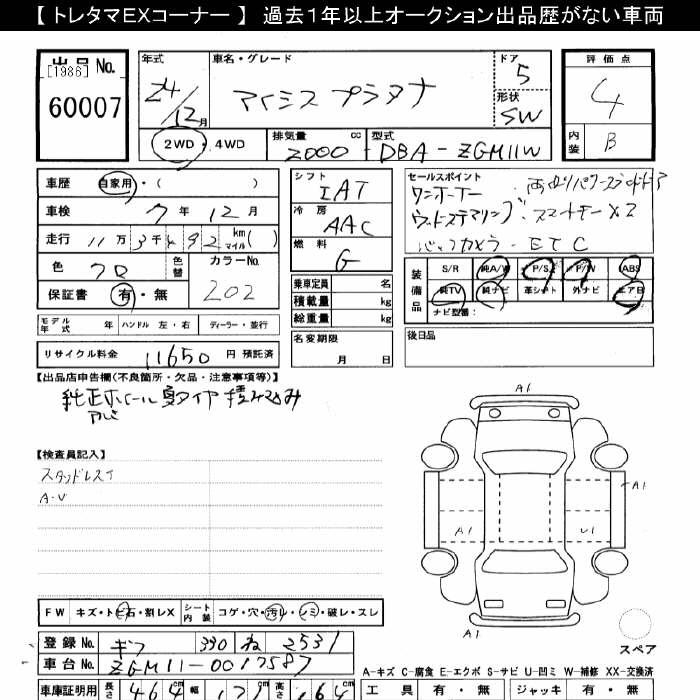 【 トレタマEXコーナー 】 過去1年以上オークション出品歴がない車両
出品 No.
[1986]
60007
年式
24/12月
車名・グレード
アイシス プラタナ
ドア
5
形状
SW
評価点
4
内装
B
2WD・4WD
排気量 cc
2000
型式
DBA-ZGM11W
車歴 自家用・( )
車検 7年 12月
走行 11万3千492 km マイル( )
色 クロ
色替
カラーNo.
202
保証書 有・無
シフト
IAT
冷房
AAC
燃料
G
セールスポイント
ワンオーナー
ウッドステアリング スマートキーX2
バックカメラ ETC
装備品
S/R 純A/W P/S P/W ABS
純TV 純ナビ 革シート 外ナビ エアB
ナビ型番:
モデル年式 年 ハンドル 左・右 ディーラー・並行
乗車定員 名
積載量 kg
総重量 kg
名変期限
月 日
後日品
リサイクル料金 11650 円 預託済
【出品店申告欄(不良箇所・欠品・注意事項等)】
純正ホイール 夏タイヤ 積み込み
アルミ
【検査員記入】
スタッドレスイ
A-U
A1
A1
A1
U1
A1
スペア
FW キズ・トビ石・割レX
シート内装 コゲ・穴・汚レ・シミ・破レ・スレ
登録 No. ギフ 330 ね 2531
車台 No. ZGM11-0017587
A-キズ C-腐食 E-エクボ S-サビ U-凹ミ W-補修 XX-交換済
車庫証明用 長さ 464cm 幅 171cm 高さ 164cm
工具 有・無 ジャッキ 有・無